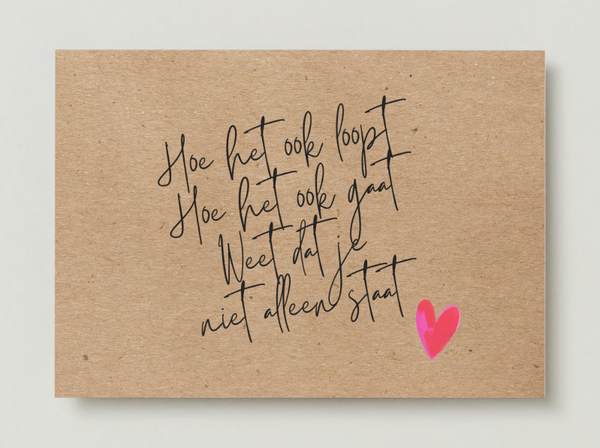 Hoe het ook loopt
Hoe het ook gaat
Weet dat je
niet alleen staat